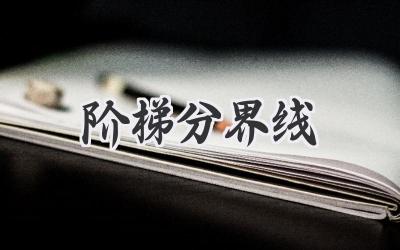 阶梯分界线